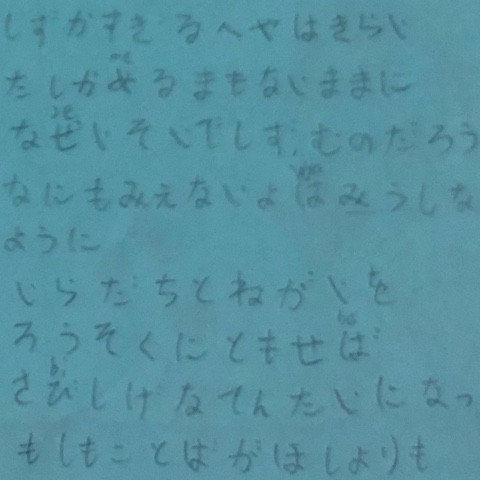 しずかすぎるへやはきらい
たしかめるまもないままに
なぜいそいでしずむのだろう
なにもみえないよばみうしな
ように
いらだちとねがいを
ろうそくにともせば
さびしげなてんたいになっ
もしもことばがほしよりも